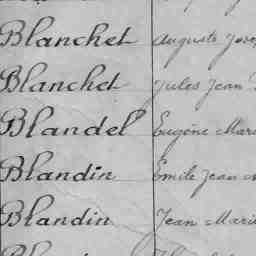 Blanchet Auguste
Blanchet Jules Jean
Blandel Eugène Mari
Blandin Emile Jean
Blandin Jean Marie